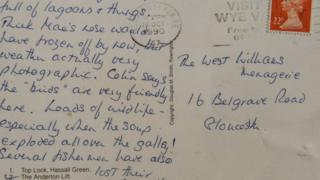 full of lagoons & things.
Mae's nose would
have frozen off by now, but
weather actually very
photographic. Colin says
the "birds" are very friendly
here. Loads of wildlife -
especially when the soup
exploded all over the galley!
Several fishermen have also
lost their
1. Top Lock, Hassall Green.
2. The Anderton Lift.
Copyright Douglas M. Smith,
1990
VISIT
WYE VA
22
The West Williams
menagerie
16 Belgrave Road
Gloucester